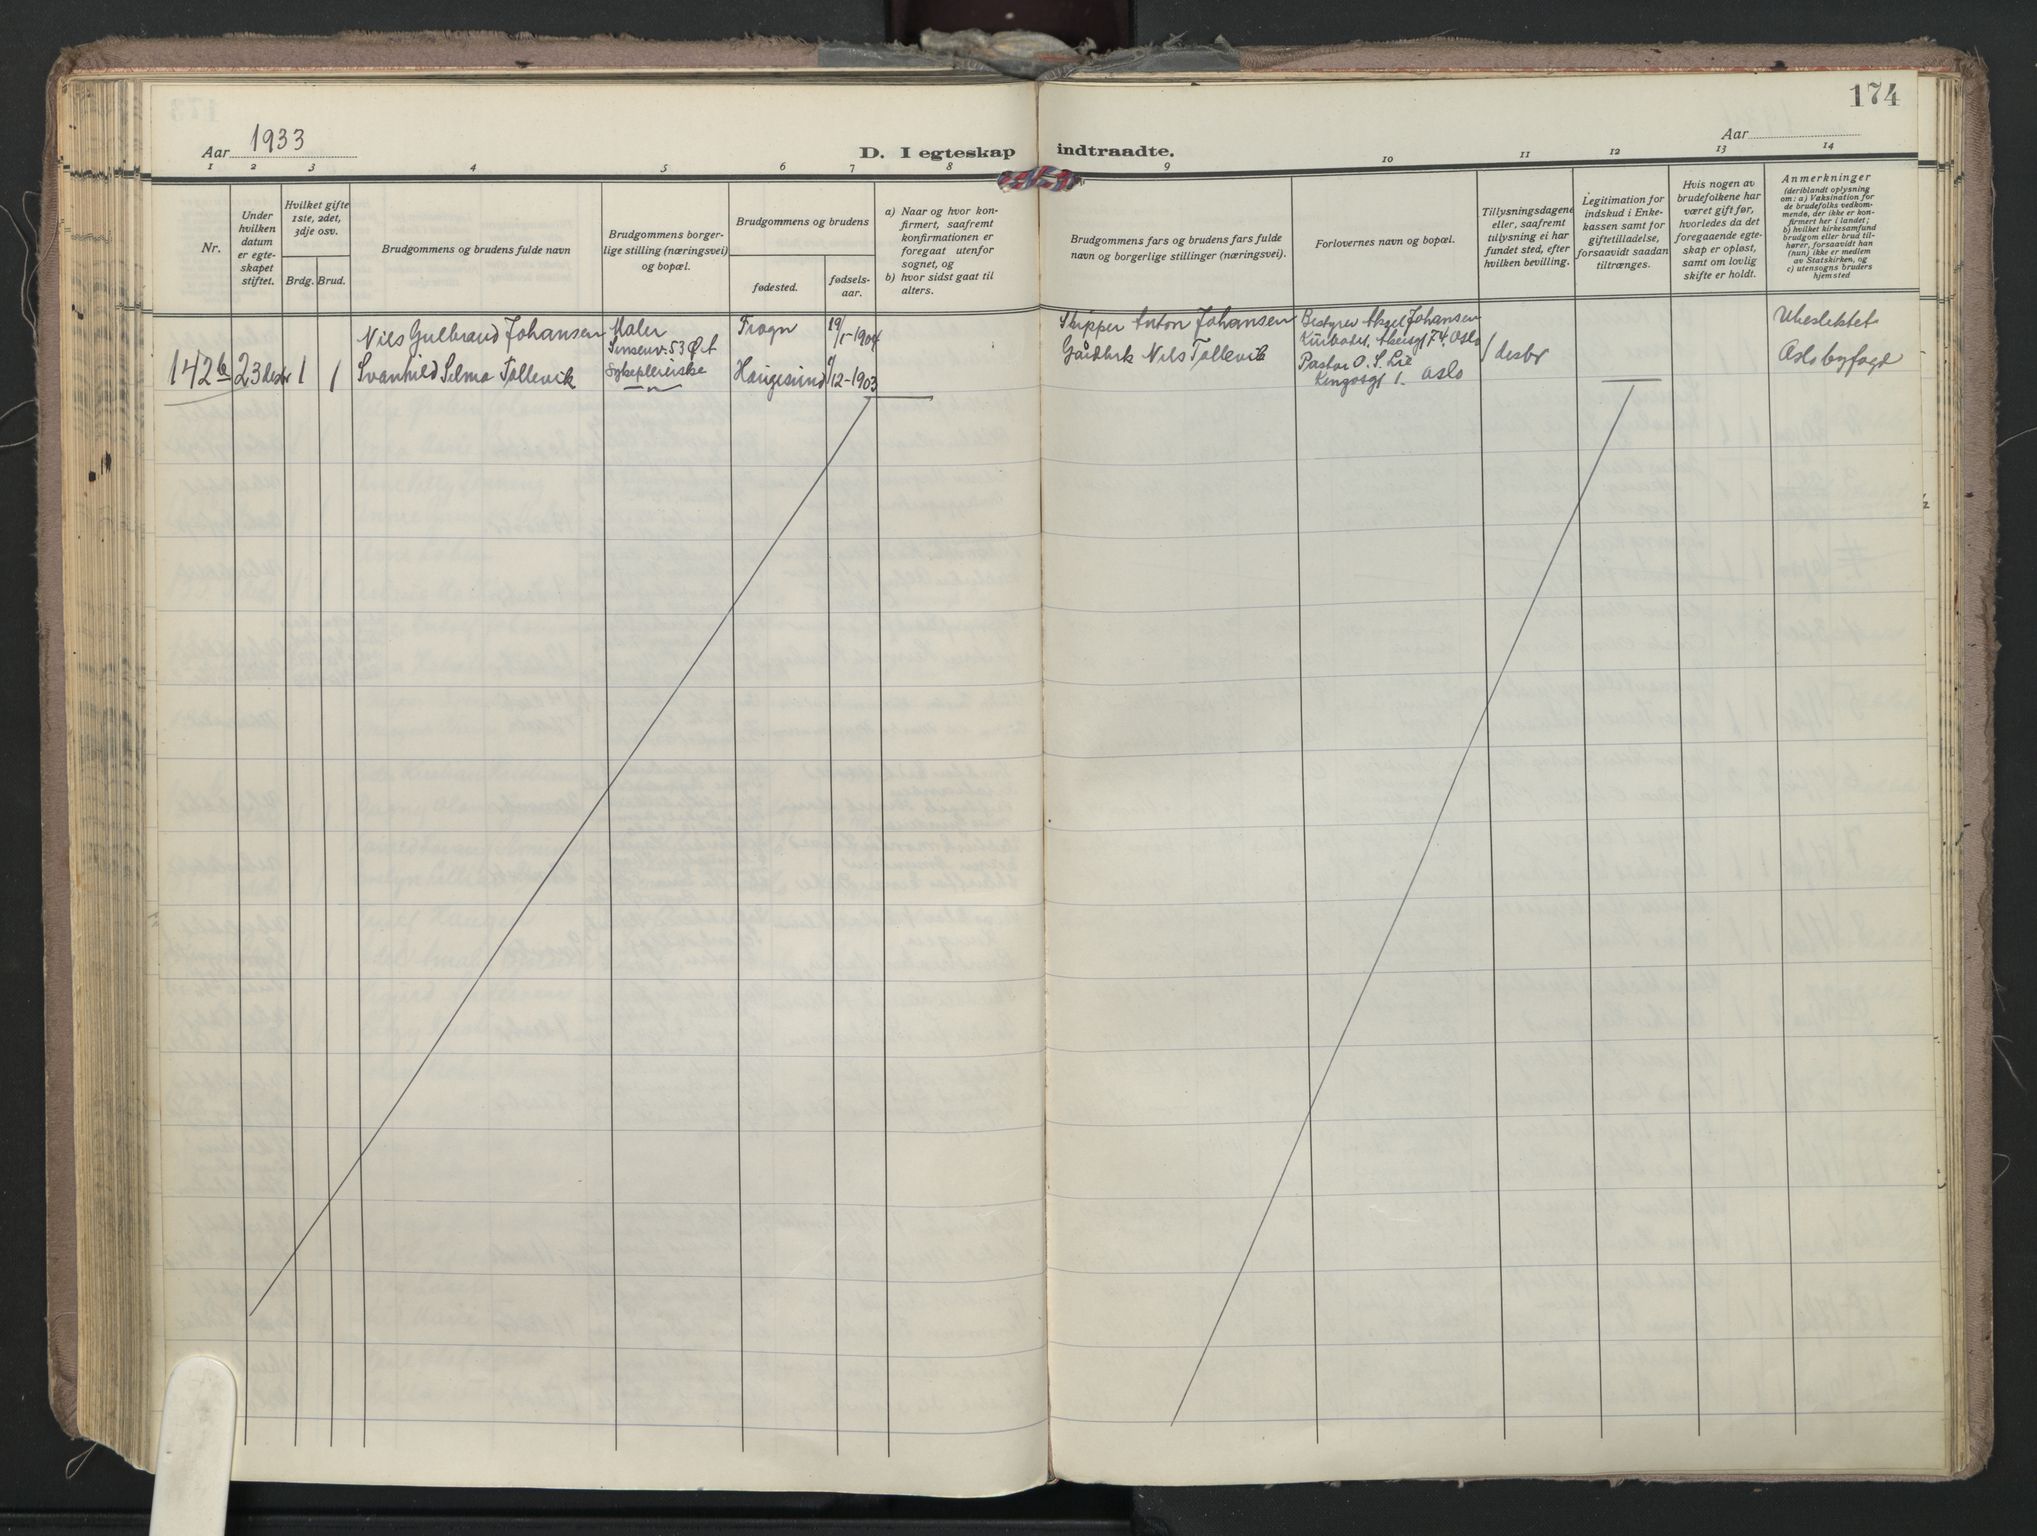 174
Aar 1933
D. I egteskap indtraadte.
Aar
1 2 3 4 5 6 7 8 9 10 11 12 13 14
Nr.
Under
hvilken
datum
er egte-
skapet
stiftet.
Hvilket gifte
1ste, 2det,
3dje osv.
Brdg. Brud.
Brudgommens og brudens fulde navn
Brudgommens borger-
lige stilling (næringsvei)
og bopæl.
Brudgommens og brudens
fødested.
fødsels-
aar.
a) Naar og hvor kon-
firmert, saafremt
konfirmationen er
foregaat utenfor
sognet, og
b) hvor sidst gaat til
alters.
Brudgommens fars og brudens fars fulde
navn og borgerlige stillinger (næringsvei).
Forlovernes navn og bopæl.
Tillysningsdagene
eller, saafremt
tillysning ei har
fundet sted, efter
hvilken bevilling.
Legitimation for
indskud i Enke-
kassen samt for
giftetilladelse,
forsaavidt saadan
tiltrænges.
Hvis nogen av
brudefolkene har
været gift før,
hvorledes da det
foregaaende egte-
skap er opløst,
samt om lovlig
skifte er holdt.
Anmerkninger
(deriblandt oplysning
om: a) Vaksination for
de brudefolks vedkom-
mende, der ikke er kon-
firmert her i landet;
b) hvilket kirkesamfund
brudgom eller brud til-
hører, forsaavidt han
(hun) ikke er medlem
av Statskirken, og
c) utensogns bruders
hjemsted
142b 23 desbr 1 1
Nils Gulbrand Johansen
Svanhild Selma Tollevik
Maler
Sinsenv. 53 Ø.A
Sykepleierske
— " —
Frogn
Haugesund
19/1-1904
/12-1903
Skipper Anton Johansen
Gårdbrk Nils Tollevik
Bestyrer Aksel Johansen
Akersgt 74. Oslo
Pastor O. S. Lie
Kingosgt 1. Oslo
/ desbr
Ubeslektet
Oslo byfogd